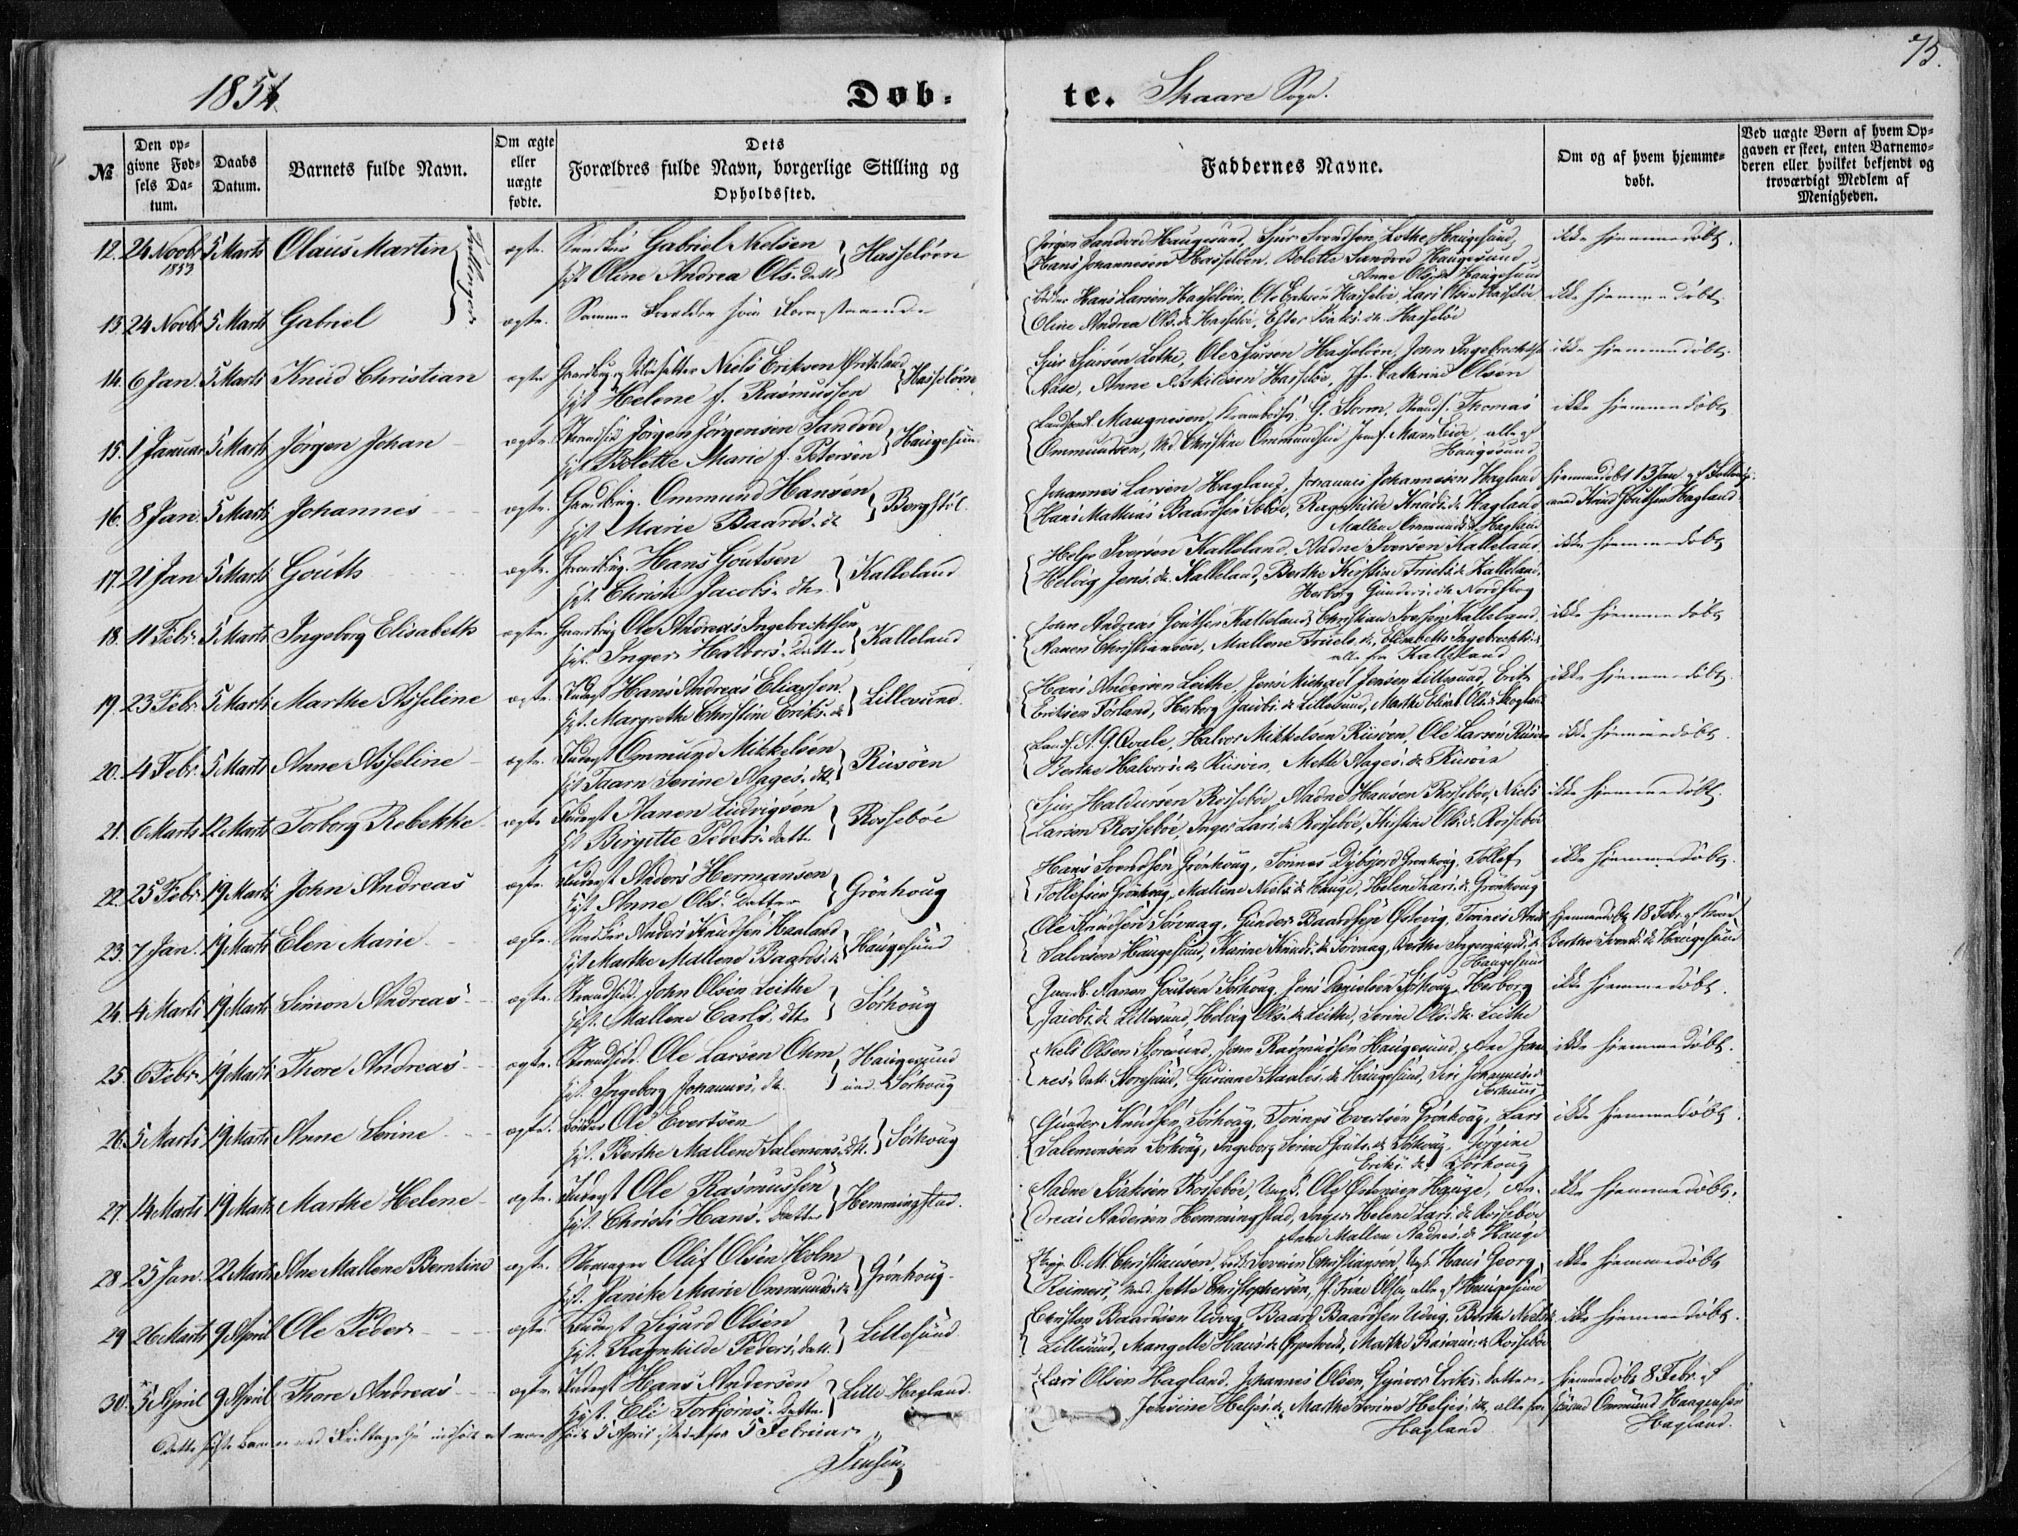 1854.
Døb-
te. Skaare Sogn.
75.
№
Den op-
givne Fød-
sels Da-
tum.
Daabs
Datum.
Barnets fulde Navn.
Om ægte
eller
uægte
fødte.
Dets
Forældres fulde Navn, borgerlige Stilling og
Opholdssted.
Faddernes Navne.
Om og af hvem hjemme-
døbt.
Ved uægte Børn af hvem Op-
gaven er skeet, enten Barnemo-
deren eller hvilket bekjendt og
troværdigt Medlem af
Menigheden.
12. 24 Novbr 1853 5 Marts Olaus Martin ægte. Gabriel Nielsen
Hst Oline Andrea Ols. Datt } Hasseløen
Jørgen Sandved Haugesund, Sjur Svendsen Lothe, Haugesund,
Hans Johannesen Hasseløen, Bolette Sandved Haugesund
Anne Ols. dr Haugesund
ikke hjemmedøbt.
Tvillinger
13 24 Novbr 5 Marts Gabriel ægte. Samme Forældre som Foregaaende
Hans Larsen Hasseløen, Ole Eriksen Hasseløe, Lars Olsen Hasseløe
Oline Andrea Ols. dr Hasseløe, Ester Isaks. dr. Hasseløe
ikke hjemmedøbt.
14. 6 Jan. 5 Marts Knud Christian ægte Niels Eriksen Qviteland
Hst Helene f. Rasmussen } Hasseløen.
Sjur Sjursen Lothe, Ole Sjursen Hasseløen, John Ingebrechtsen
Aase, Anne Askildsen Hasseløe, Jfr. Cathrine Olsen
ikke hjemmedøbt.
15. 1 Januar 5 Marts Jørgen Johan ægte. Strandsid Jørgen Jørgensen Sandved
Hst Bolette Marie f. Petersen } Haugesund
Magnesen, G. Storm, Strands. Thomas
Ommundsen, Md. Christine Ommundsen, Jomf. Maren Eide, alle af
Haugesund
ikke hjemmedøbt
16. 8 Jan. 5 Marts Johannes ægte. Gaardbrug. Ommund Hansen
Hst Marie Baards. dr } Borgstøl.
Johannes Larsen Hagland, Johannes Johannesen Hagland
Hans Mathias Baardsen, Ragnhilde Knuds. dr Hagland
Mallene Ommunds. dr Hagland
hjemmedøbt 13 Jan af
Knud Goutsen Hagland.
17. 21 Jan 5 Marts Gouth ægte. Gaardbrug. Hans Goutsen
Hst. Christi Jacobs. dtr } Kalleland
Helge Iversen Kalleland, Aadne Iversen Kalleland
Helvig Jens. dr. Kalleland, Berthe Kirstine Truels. dr Kalleland,
Herborg Gunders. dr Nordskog
ikke hjemmedøbt
18. 11 Febr. 5 Marts Ingeborg Elisabeth ægte Gaardbrug Ole Andreas Ingebrechtsen
Hst. Inger Halvors. Datter } Kalleland
John Andreas Goutsen Kalleland, Christian Iversen Kalleland,
Aanen Christiansen, Mallene Truels. dr., Elisabeth Ingebrechts. dr
alle fra Kalleland
ikke hjemmedøbt
19. 23 Febr. 5 Marts Marthe Asseline ægte. Inderst Hans Andreas Eliassen
Hst. Margrethe Christine Eriks. dr } Lillesund.
Hans Andersen Leithe, Jens Michael Jensen Lillesund, Erik
Eriksen Førland, Herborg Jacobs. dr Lillesund, Marthe Elisab. Ols. dr
ikke hjemmedøbt.
20. 4 Febr. 5 Marts Anne Asseline ægte. Inderst Ommund Mikkelsen
Hst Taarn Serine Aages. dtr } Riisøen
A. G. Qvale, Halvor Mikkelsen Riisøen, Ole Larsen Riisøen
Berthe Halvors. dr Riisøen, Mette Aages. dr Riisøen
ikke hjemmedøbt.
21. 6 Marts 12 Marts Torborg Rebekke ægte Inderst Aanen Ludvigsen
Hst Birgitte Peders. Datt. } Rossebøe
Sjur Haldorsen Rossebøe, Aadne Hansen Rossebøe, Niels
Larsen Rossebøe, Inger Lars. dr Rossebøe, Kristine Ols. dr. Rossebøe
ikke hjemmedøbt
22. 25 Febr. 19 Marts John Andreas ægte. Inderst Anders Hermansen
Hst Anne Ols. Datter } Grønhoug
Hans Svendsen Grønhoug, Tønnes Grønhoug, Tollef
Tollefsen Grønhoug, Mallene Niels. dr Houge, Helene Lars. dr. Grønhoug
ikke hjemmedøbt.
23. 7 Jan. 19 Marts Elen Marie ægte. Anders Knudsen Haaland
Hst Marthe Mallene Baards. dr } Haugesund
Ole Knudsen Sørvaag, Gunder Baardsen Østevig, Tønnes
Salvesen Haugesund, Karine Knuds. dr Sørvaag, Berthe
Haugesund
hjemmedøbt 18 Febr. af
Berthe Svends. dr Haugesund
24. 4 Marts 19 Marts Simon Andreas ægte. Strandsid. John Olsen Leithe
Hst. Mallene Carls. dtr } Sørhoug
Aanen Goutsen Sørhoug, Jens Danielsen Sørhoug, Herborg
Jacobs. dr Lillesund, Helvig Ols. dr Leithe, Serine Ols. dr. Leithe
ikke hjemmedøbt.
25. 6 Febr. 19 Marts Thore Andreas ægte. Strandsid. Ole Larsen Ohm
Hst. Ingeborg Johannes. dr. } Haugesund
ved Sørhoug
Niels Olsen Storesund, John Rasmussen Haugesund, Ane Johan-
nes. datt. Storesund, Guriane Haugesund, Siri Johannes. dr
Sørhoug
ikke hjemmedøbt.
26. 5 Marts 19 Marts Anne Serine ægte. Ole Evertsen
Hst. Berthe Mallene Salemons. Dtr. } Sørhoug
Gunder Knudsen Sørhoug, Tønnes Evertsen Grønhoug, Lars
Salemonsen Sørhoug, Ingeborg Serine Gouts. dr Sørhoug, Jørgine
Eriks. dr Sørhoug
ikke hjemmedøbt.
27. 14 Marts 19 Marts Marthe Helene ægte. Inderst Ole Rasmussen
Hst. Christi Hans. Datter } Hemmingstad.
Aadne Isaksen Rossebøe, Ungk. Ole Østensen Houge, An-
dreas Andersen Hemmingstad, Inger Helene Lars. dr Rossebøe
Ane Mallene Aadnes. dr Houge
ikke hjemmedøbt.
28 25 Jan. 22 Marts Ane Mallene Berntine ægte. Oluf Olsen Holm
Hst. Janike Marie Ommunds. dr } Grønhoug.
O. M. Christiansen, Severin Christiansen, Ungk. Hans Georg
Reimers, Mad. Jette Christophersen, Jf. Trine Olsen alle af Haugesund
ikke hjemmedøbt
29 26 Marts 9 April Ole Peder ægte. Inderst Sigurd Olsen
Hst. Ragnhilde Peders. datt. } Lillesund
Christen Baardsen Udvig, Baard Baardsen Udvig, Berthe Niels. dr
Lillesund, Mangelle Hans. dr, Marthe Rasmus. dr Rossebøe
ikke hjemmedøbt.
30. 5 April 9 April Thore Andreas ægte. Inderst Hans Andersen
Hst. Ole Torbjørns. Datter } Lille Hagland.
Lars Olsen Hagland, Johannes Olsen, Gjøvor Eriks. datter,
Johanne Helges. dr, Marthe Serine Helges. dr alle fra
Hagland
hjemmedøbt 8 Febr. af
Ommund Haagensen
Hagland.
Dette sidste Barn er ved Feiltagelse indført at være født 5 April istedetfor 5 Februar.
Jensen